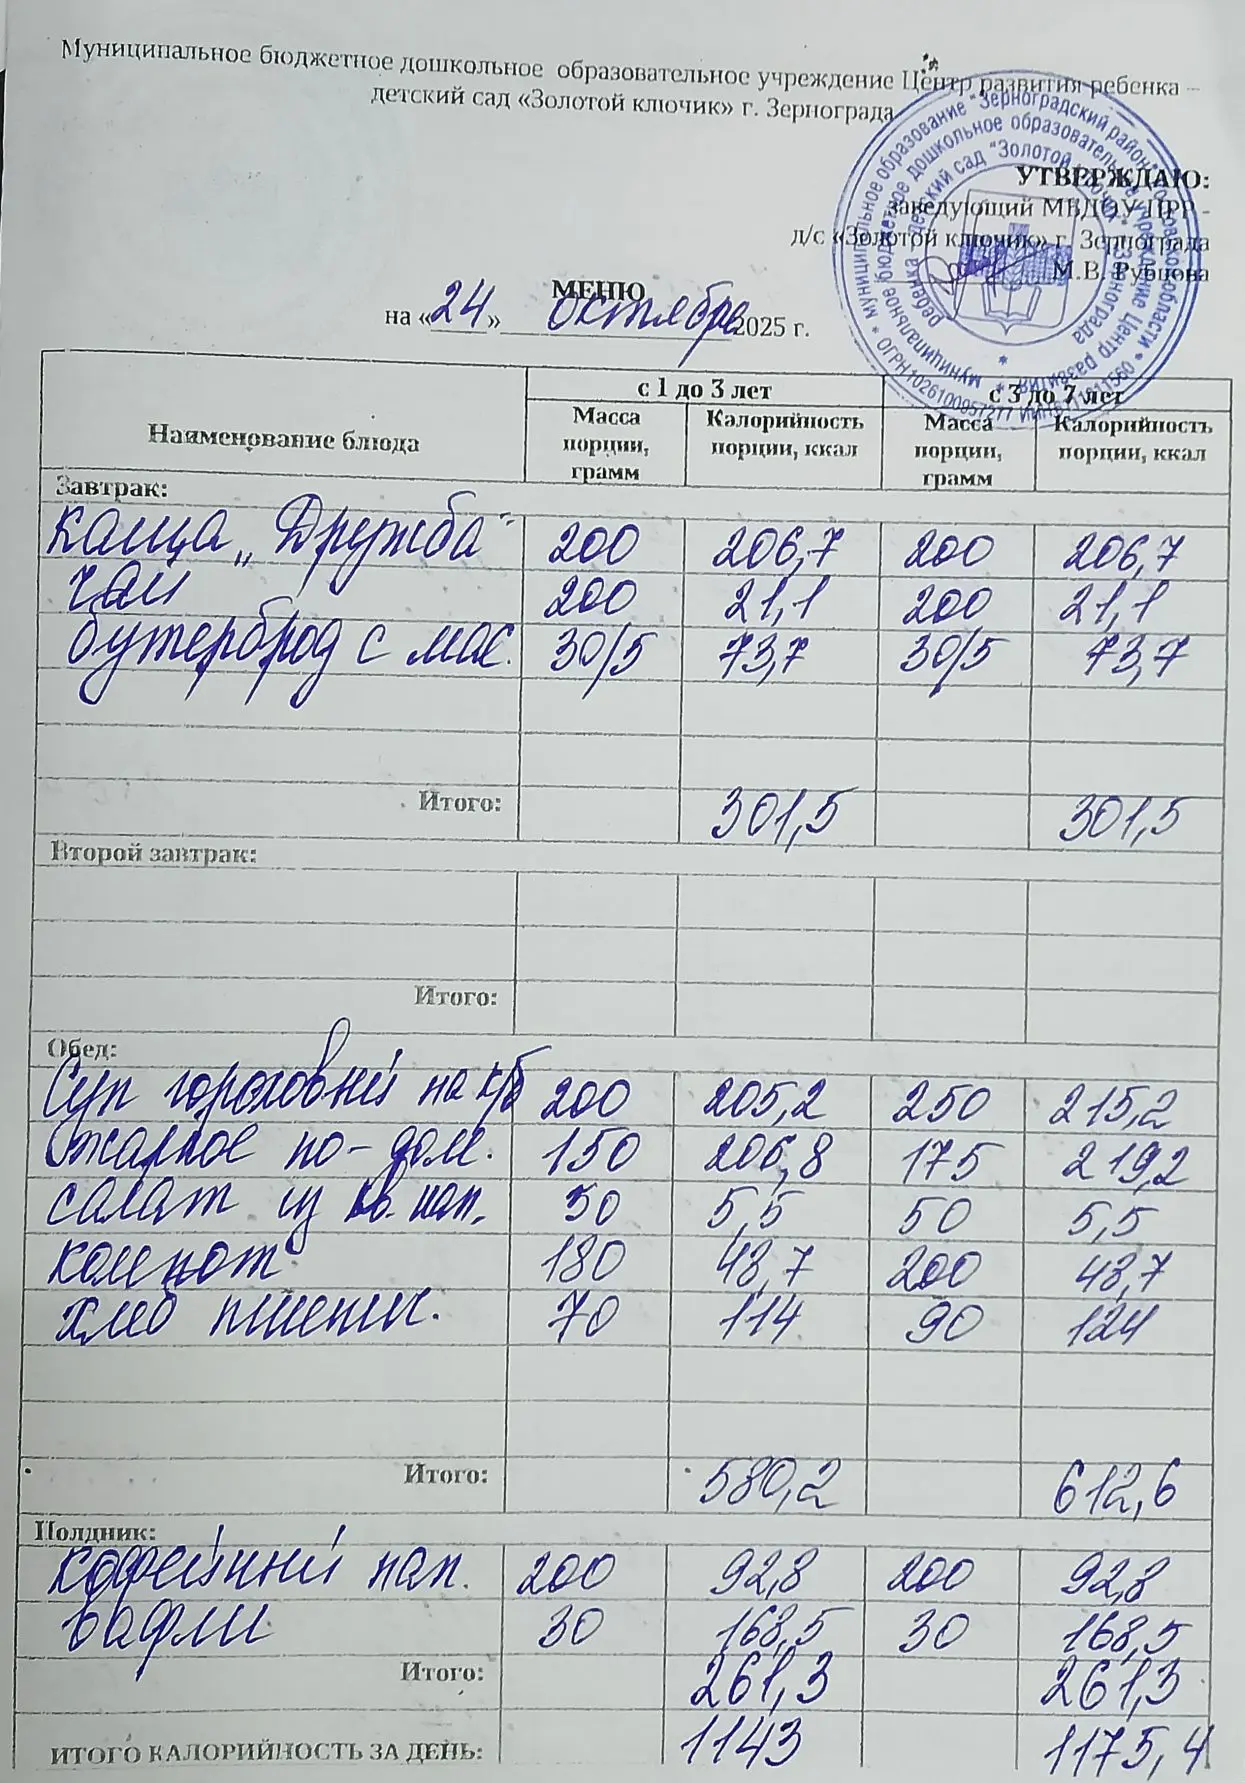 Муниципальное бюджетное дошкольное образовательное учреждение Центр развития ребенка –
детский сад «Золотой ключик» г. Зернограда
УТВЕРЖДАЮ:
заведующий МБДОУ ЦРР -
д/с «Золотой ключик» г. Зернограда
М.В. Рубцова
МЕНЮ
на «24» октября 2025 г.
Наименование блюда с 1 до 3 лет с 3 до 7 лет
Масса порции, грамм Калорийность порции, ккал Масса порции, грамм Калорийность порции, ккал
Завтрак:
Каша „Дружба" 200 206,7 200 206,7
чай 200 21,1 200 21,1
бутерброд с мас. 30/5 73,7 30/5 73,7
Итого: 301,5 301,5
Второй завтрак:
Итого:
Обед:
Суп гороховый на к/б 200 205,2 250 215,2
Жаркое по-дом. 150 206,8 175 219,2
салат из кв. кап. 50 5,5 50 5,5
компот 180 48,7 200 48,7
хлеб пшенич. 70 114 90 124
Итого: 580,2 612,6
Полдник:
кофейный нап. 200 92,8 200 92,8
вафли 30 168,5 30 168,5
Итого: 261,3 261,3
ИТОГО КАЛОРИЙНОСТЬ ЗА ДЕНЬ: 1143 1175,4